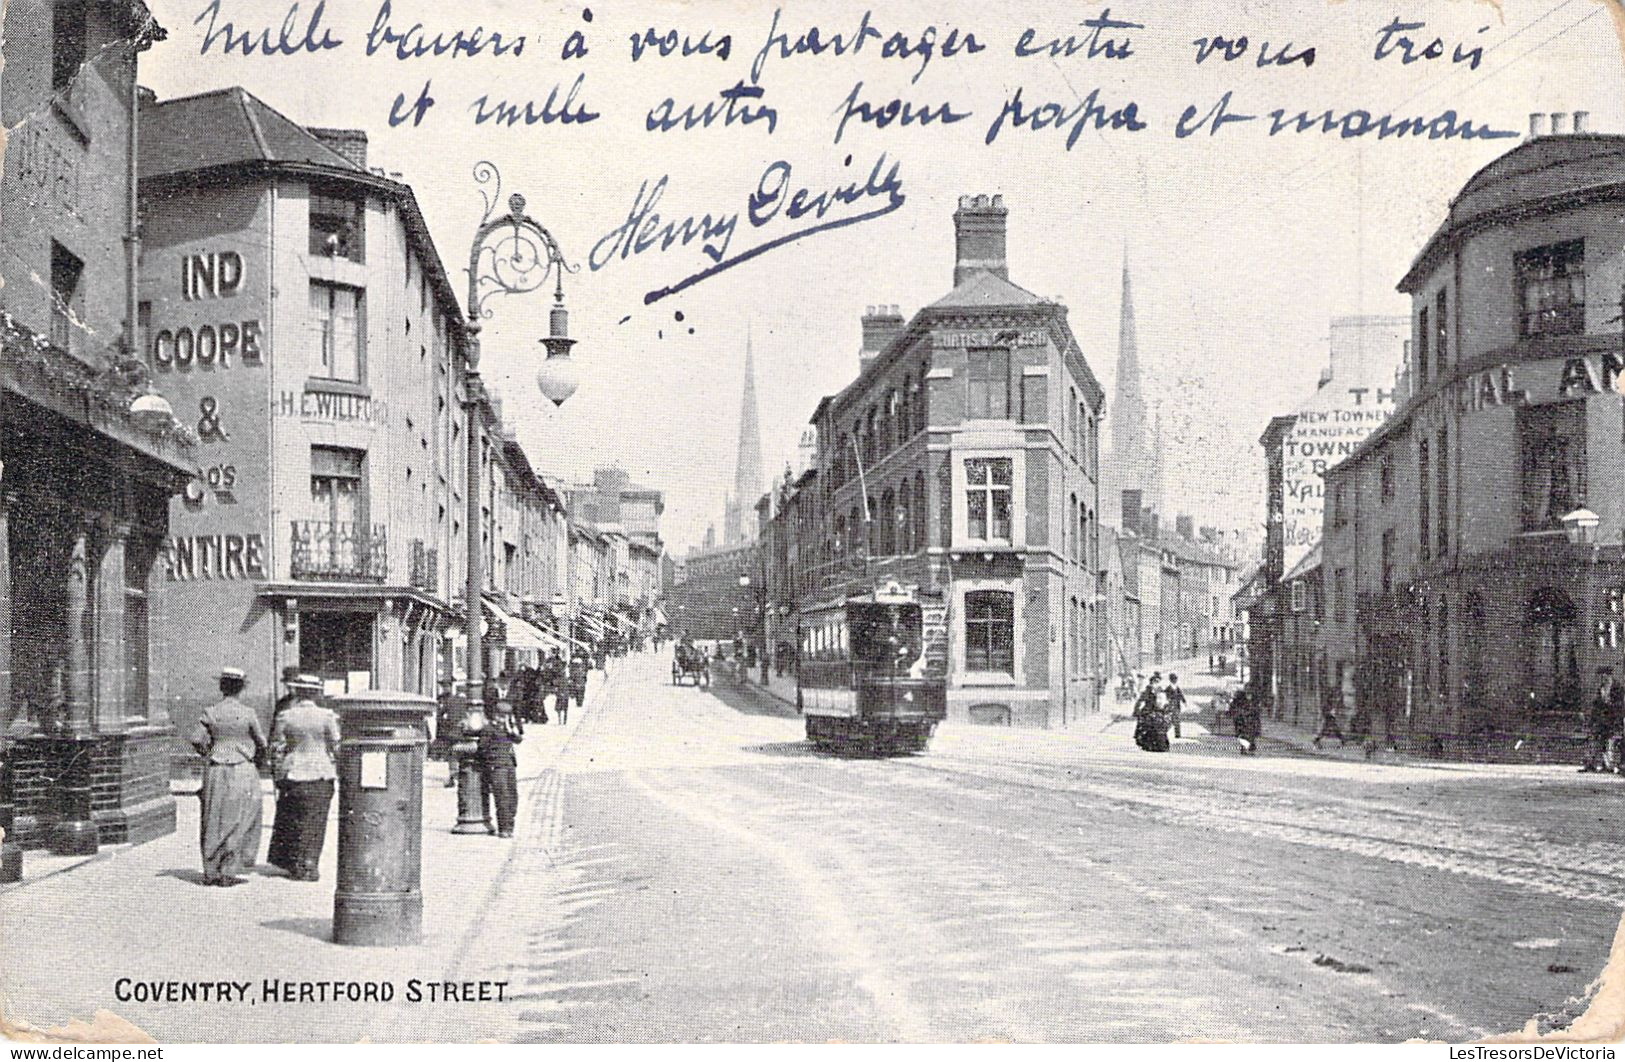 Mille baisers à vous partager entre vous trois
et mille autres pour papa et maman
Henry Deville
IND
COOPE
&
CO'S
ENTIRE
H.E. WILLFORD
TH
NEW TOWNEN
MANUFACT
TOWNE
THE B
VAL
IN TH
CIAL AN
COVENTRY, HERTFORD STREET.
LesTresorsDeVictoria